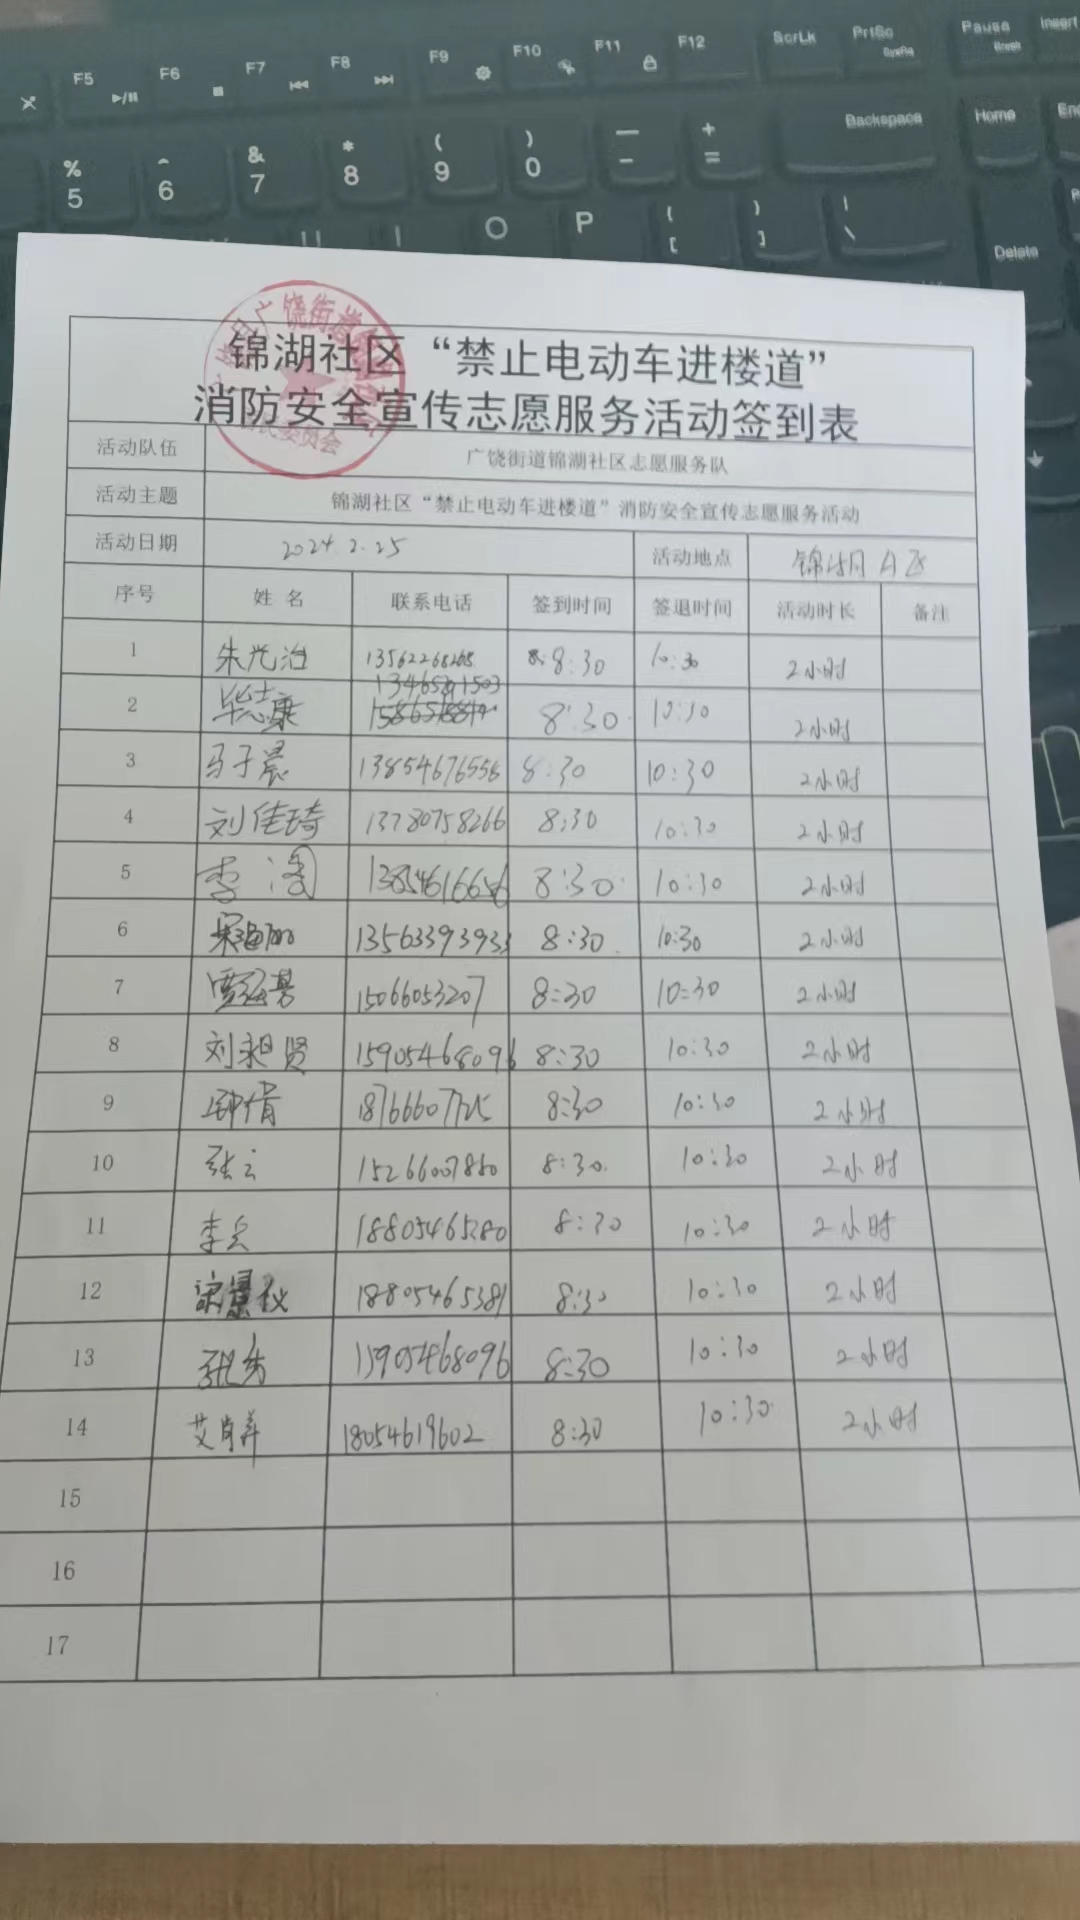 F5 F6 F7 F8 F9 F10 F11 F12 ScrLk PrtSc SysRq Pause Break Insert
% 5 ^ 6 & 7 * 8 ( 9 ) 0 — - + = Backspace Home
U I O P { [ } ] | \ Delete
锦湖社区“禁止电动车进楼道”
消防安全宣传志愿服务活动签到表
活动队伍 广饶街道锦湖社区志愿服务队
活动主题 锦湖社区“禁止电动车进楼道”消防安全宣传志愿服务活动
活动日期 2024.2.25 活动地点 锦湖A区
序号 姓名 联系电话 签到时间 签退时间 活动时长 备注
1 朱光治 13562268268 8:30 10:30 2小时
2 毕志康 13465291503 8:30 10:30 2小时
3 马子晨 13854676556 8:30 10:30 2小时
4 刘佳琦 13780758266 8:30 10:30 2小时
5 李 13854616656 8:30 10:30 2小时
6 13563393933 8:30 10:30 2小时
7 15066053207 8:30 10:30 2小时
8 刘 贤 15905468096 8:30 10:30 2小时
9 倩 8:30 10:30 2小时
10 张云 15266007860 8:30 10:30 2小时
11 李 18805465280 8:30 10:30 2小时
12 18805465381 8:30 10:30 2小时
13 张 15905468096 8:30 10:30 2小时
14 艾 18054619602 8:30 10:30 2小时
15
16
17